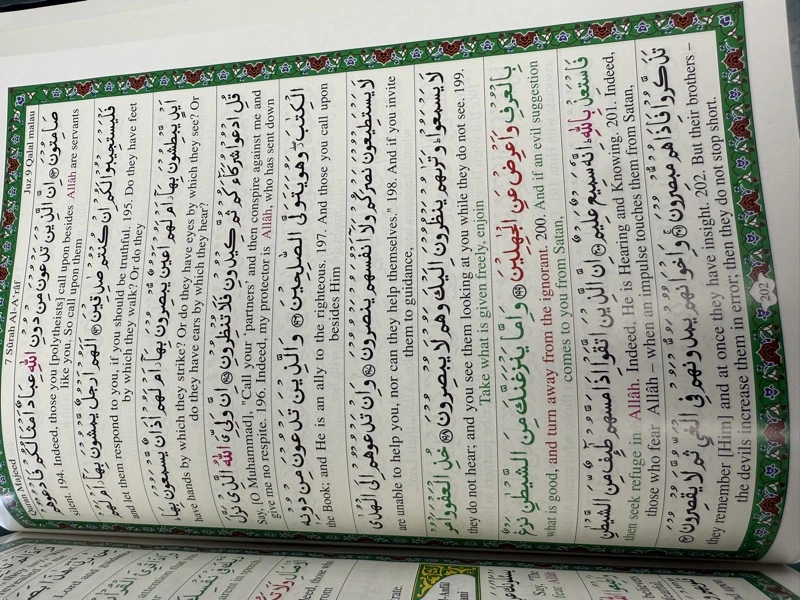 Quran Majeed 7 Sûrah Al-A'râf Juz 9 Qalal malau
صَامِتُوْنَ ﴿۱۹۳﴾ اِنَّ الَّذِيْنَ تَدْعُوْنَ مِنْ دُوْنِ اللّٰهِ عِبَادٌ اَمْثَالُكُمْ فَادْعُوْهُمْ
silent. 194. Indeed, those you [polytheists] call upon besides Allâh are servants
like you. So call upon them
فَلْيَسْتَجِيْبُوْا لَكُمْ اِنْ كُنْتُمْ صٰدِقِيْنَ ﴿۱۹۴﴾ اَلَهُمْ اَرْجُلٌ يَّمْشُوْنَ بِهَاۤ اَمْ لَهُمْ
and let them respond to you, if you should be truthful. 195. Do they have feet
by which they walk? Or do they
اَيْدٍ يَّبْطِشُوْنَ بِهَاۤ اَمْ لَهُمْ اَعْيُنٌ يُّبْصِرُوْنَ بِهَاۤ اَمْ لَهُمْ اٰذَانٌ يَّسْمَعُوْنَ بِهَا
have hands by which they strike? Or do they have eyes by which they see? Or
do they have ears by which they hear?
قُلِ ادْعُوْا شُرَكَآءَكُمْ ثُمَّ كِيْدُوْنِ فَلَا تُنْظِرُوْنِ ﴿۱۹۵﴾ اِنَّ وَلِيِّ ےَ اللّٰهُ الَّذِيْ نَزَّلَ
Say, [O Muhammad], "Call your 'partners' and then conspire against me and
give me no respite. 196. Indeed, my protector is Allâh, who has sent down
الْكِتٰبَ وَهُوَ يَتَوَلَّى الصّٰلِحِيْنَ ﴿۱۹۶﴾ وَالَّذِيْنَ تَدْعُوْنَ مِنْ دُوْنِهٖ
the Book; and He is an ally to the righteous. 197. And those you call upon
besides Him
لَا يَسْتَطِيْعُوْنَ نَصْرَكُمْ وَلَاۤ اَنْفُسَهُمْ يَنْصُرُوْنَ ﴿۱۹۷﴾ وَاِنْ تَدْعُوْهُمْ اِلَى الْهُدٰى
are unable to help you, nor can they help themselves." 198. And if you invite
them to guidance,
لَا يَسْمَعُوْا وَتَرٰىهُمْ يَنْظُرُوْنَ اِلَيْكَ وَهُمْ لَا يُبْصِرُوْنَ ﴿۱۹۸﴾ خُذِ الْعَفْوَ وَاْمُرْ
they do not hear; and you see them looking at you while they do not see. 199.
Take what is given freely, enjoin
بِالْعُرْفِ وَاَعْرِضْ عَنِ الْجٰهِلِيْنَ ﴿۱۹۹﴾ وَاِمَّا يَنْزَغَنَّكَ مِنَ الشَّيْطٰنِ نَزْغٌ
what is good, and turn away from the ignorant. 200. And if an evil suggestion
comes to you from Satan,
فَاسْتَعِذْ بِاللّٰهِ اِنَّهٗ سَمِيْعٌ عَلِيْمٌ ﴿۲۰۰﴾ اِنَّ الَّذِيْنَ اتَّقَوْا اِذَا مَسَّهُمْ طٰٓئِفٌ مِّنَ الشَّيْطٰنِ
then seek refuge in Allâh. Indeed, He is Hearing and Knowing. 201. Indeed,
those who fear Allâh – when an impulse touches them from Satan,
تَذَكَّرُوْا فَاِذَا هُمْ مُّبْصِرُوْنَ ﴿۲۰۱﴾ وَاِخْوَانُهُمْ يَمُدُّوْنَهُمْ فِي الْغَيِّ ثُمَّ لَا يُقْصِرُوْنَ ﴿۲۰۲﴾
they remember [Him] and at once they have insight. 202. But their brothers –
the devils increase them in error; then they do not stop short.
202